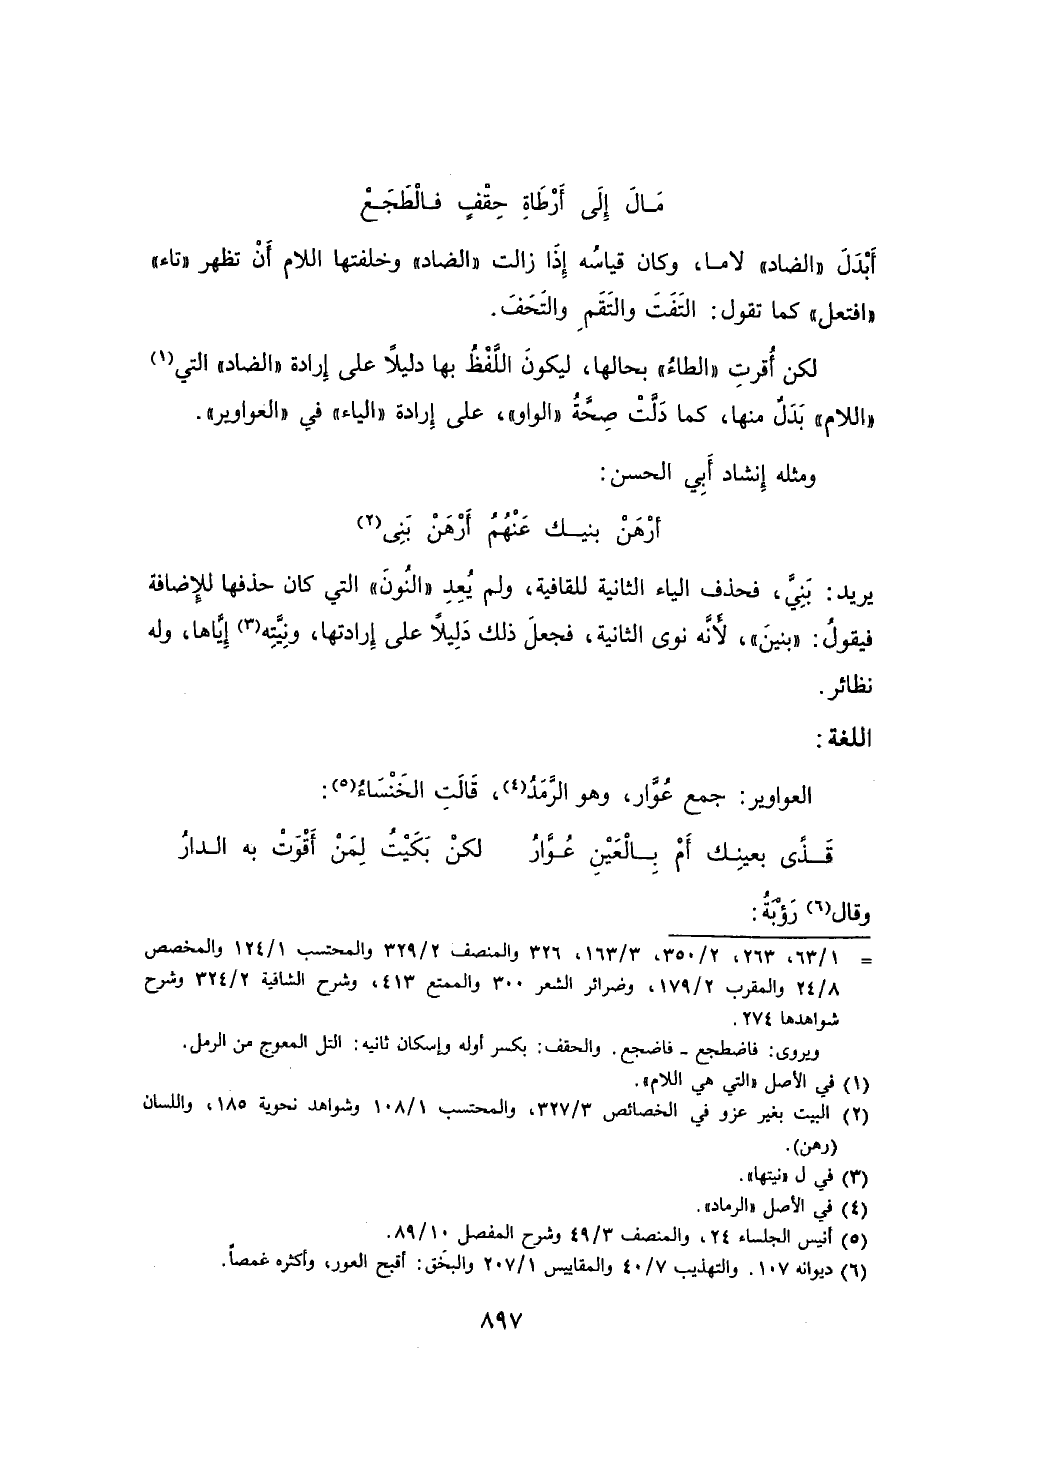 مَـالَ إِلَى أَرْطَاةِ حِقْفٍ فـالْطَجَـعْ
أَبْدَلَ «الضاد» لامـا، وكان قياسُه إِذَا زالت «الضاد» وخلفتها اللام أَنْ تظهر «تاء»
«افتعل» كما تقول: التَفَتَ والتَقَمِ والتَحَفَ.
لكن أُقرتِ «الطاءُ» بحالها، ليكونَ اللَّفْظُ بها دليلاً على إرادة «الضاد» التي(١)
«اللام» بَدَلٌ منها، كما دَلَّتْ صِحَّةُ «الواو»، على إرادة «الياء» في «العواوير».
ومثله إِنشاد أَبِي الحسن:
أرْهَنْ بنيـك عَنْهُمُ أَرْهَنْ بَنِى(٢)
يريد: بَنِيَّ، فحذف الياء الثانية للقافية، ولم يُعِدِ «النُونَ» التي كان حذفها للإضافة
فيقولُ: «بنينَ»، لأَنَّه نوى الثانية، فجعلَ ذلك دَلِيلاً على إرادتها، ونِيَّتِه(٣) إيَّاها، وله
نظائر.
اللغة:
العواوير: جمع عُوَّار، وهو الرَّمَدُ(٤)، قَالَتِ الخَنْسَاءُ(٥):
قَــذًى بعينِـك أَمْ بِـالْعَيْنِ عُـوَّارُ لكنْ بَكَيْتُ لِمَنْ أَقْوَتْ به الـدارُ
وقال(٦) رَؤْبَةُ:
= ٦٣/١، ٢٦٣، ٣٥٠/٢، ١٦٣/٣، ٣٢٦ والمنصف ٣٢٩/٢ والمحتسب ١٢٤/١ والمخصص
٢٤/٨ والمقرب ١٧٩/٢، وضرائر الشعر ٣٠٠ والممتع ٤١٣، وشرح الشافية ٣٢٤/٢ وشرح
شواهدها ٢٧٤.
ويروى: فاضطجع ـ فاضجع. والحقف: بكسر أوله وإسكان ثانيه: التل المعوج من الرمل.
(١) في الأصل «التي هي اللام».
(٢) البيت بغير عزو في الخصائص ٣٢٧/٣، والمحتسب ١٠٨/١ وشواهد نحوية ١٨٥، واللسان
(رهن).
(٣) في ل «نيتها».
(٤) في الأصل «الرماد».
(٥) أنيس الجلساء ٢٤، والمنصف ٤٩/٣ وشرح المفصل ٨٩/١٠.
(٦) ديوانه ١٠٧. والتهذيب ٤٠/٧ والمقاييس ٢٠٧/١ والبخَق: أقبح العور، وأكثره غمصاً.
٨٩٧